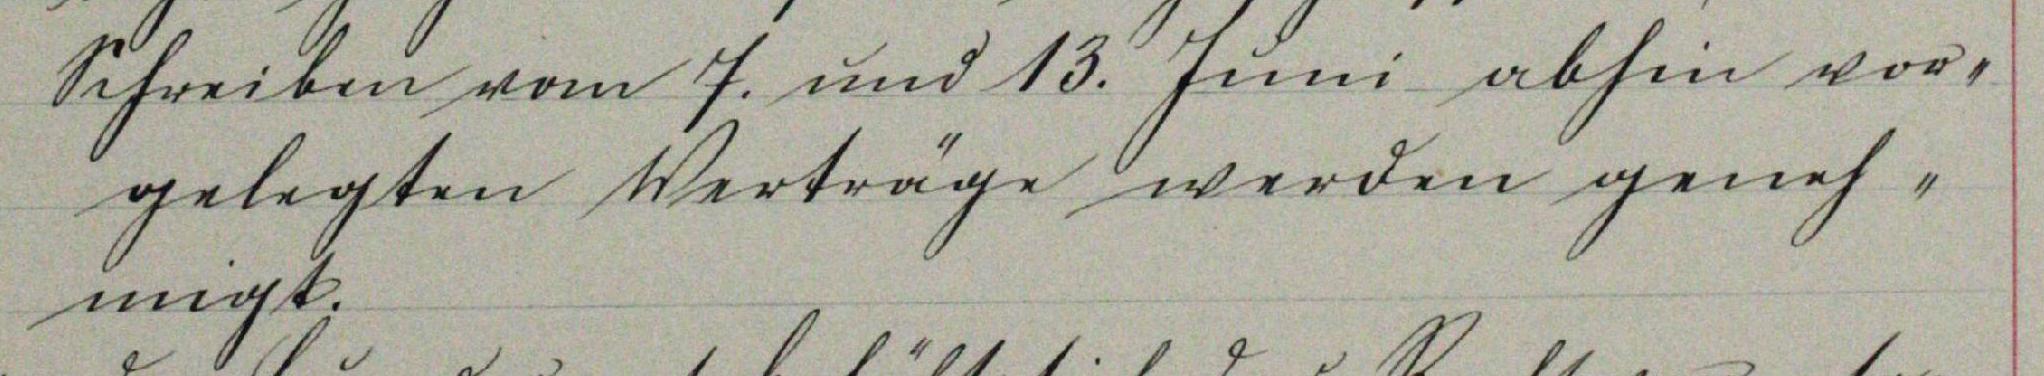 Schreiben vom 7. und 13. Juni abhin vor-
gelegten Verträge werden geneh-
migt.